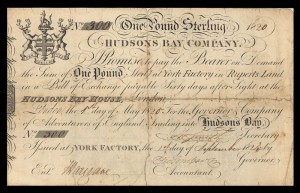 No. 300 One Pound Sterling 1820
HUDSONS BAY COMPANY.
Promise to pay the Bearer on Demand
the Sum of One Pound Sterg at York Factory in Ruperts Land
in a Bill of Exchange payable Sixty days after Sight at the
HUDSONS BAY HOUSE, London
London the day of May 1820 For the Governor & Company
of Adventurers of England trading into Hudsons Bay
No. 300
Secretary
Issued at YORK FACTORY, the day of September by
Governor
Entd.
Accountant